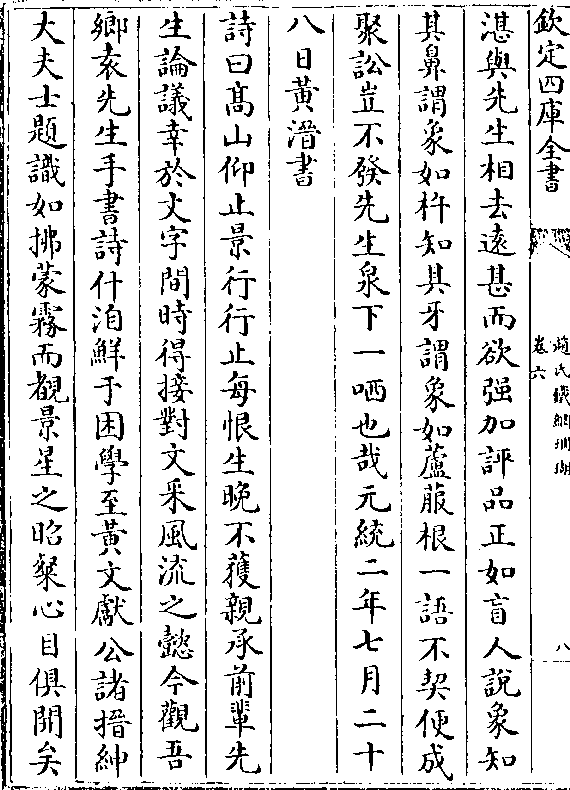 欽定四庫全書
趙氏鐵網珊瑚
卷六
八
湛與先生相去遠甚而欲强加評品正如盲人說象知
其鼻謂象如杵知其牙謂象如蘆菔根一語不契便成
聚訟豈不發先生泉下一哂也哉元統二年七月二十
八日黄溍書
詩曰髙山仰止景行行止每恨生晚不獲親承前輩先
生論議幸於文字間時得接對文采風流之懿今觀吾
鄉袁先生手書詩什洎鮮于困學至黄文獻公諸搢紳
大夫士題識如拂蒙霧而覩景星之昭粲心目俱開矣